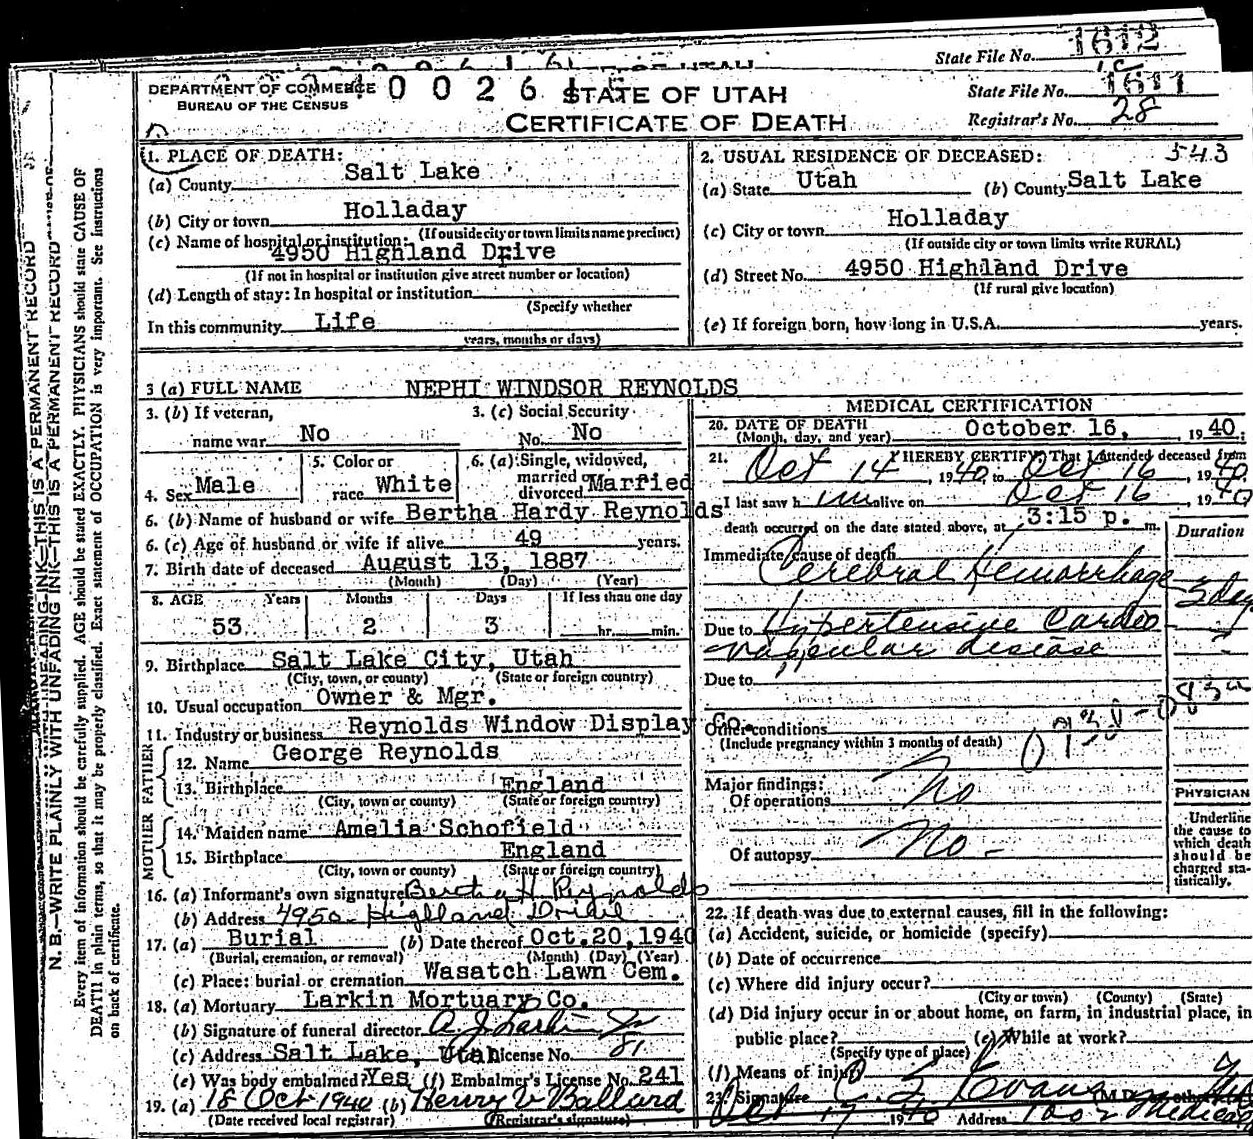 State File No. 1612
DEPARTMENT OF COMMERCE
BUREAU OF THE CENSUS
STATE OF UTAH
State File No. 1611
CERTIFICATE OF DEATH
Registrar's No. 28
1. PLACE OF DEATH:
(a) County Salt Lake
(b) City or town Holladay
(If outside city or town limits name precinct)
(c) Name of hospital or institution:
4950 Highland Drive
(If not in hospital or institution give street number or location)
(d) Length of stay: In hospital or institution
(Specify whether
In this community Life
years, months or days)
2. USUAL RESIDENCE OF DECEASED: 543
(a) State Utah (b) County Salt Lake
(c) City or town Holladay
(If outside city or town limits write RURAL)
(d) Street No. 4950 Highland Drive
(If rural give location)
(e) If foreign born, how long in U.S.A. years.
3 (a) FULL NAME NEPHI WINDSOR REYNOLDS
3. (b) If veteran,
name war No
3. (c) Social Security
No. No
4. Sex Male
5. Color or
race White
6. (a) Single, widowed,
married or
divorced Married
6. (b) Name of husband or wife Bertha Hardy Reynolds
6. (c) Age of husband or wife if alive 49 years.
7. Birth date of deceased August 13, 1887
(Month) (Day) (Year)
8. AGE Years Months Days If less than one day
53 2 3 hr. min.
9. Birthplace Salt Lake City, Utah
(City, town, or county) (State or foreign country)
10. Usual occupation Owner & Mgr.
11. Industry or business Reynolds Window Display Co.
FATHER
12. Name George Reynolds
13. Birthplace England
(City, town or county) (State or foreign country)
MOTHER
14. Maiden name Amelia Schofield
15. Birthplace England
(City, town or county) (State or foreign country)
16. (a) Informant's own signature Bertha H Reynolds
(b) Address 4950 Highland
17. (a) Burial (b) Date thereof Oct. 20, 1940
(Burial, cremation, or removal) (Month) (Day) (Year)
(c) Place: burial or cremation Wasatch Lawn Cem.
18. (a) Mortuary Larkin Mortuary Co.
(b) Signature of funeral director A. J. Larkin Jr
(c) Address Salt Lake, Utah License No. 81
(e) Was body embalmed? Yes (f) Embalmer's License No. 241
19. (a) 18 Oct 1940 (b) Henry V Ballard
(Date received local registrar) (Registrar's signature)
MEDICAL CERTIFICATION
20. DATE OF DEATH
(Month, day, and year) October 16, 1940.
21. I HEREBY CERTIFY, That I attended deceased from
Oct 14, 1940, to Oct 16, 1940
I last saw him alive on Oct 16 1940
death occurred on the date stated above, at 3:15 p. m.
Duration
Immediate cause of death
Cerebral Hemorrhage
Due to Hypertensive Cardio
vascular disease
Due to
Other conditions
(Include pregnancy within 3 months of death)
Major findings:
Of operations No
Of autopsy No -
PHYSICIAN
Underline
the cause to
which death
should be
charged sta-
tistically.
22. If death was due to external causes, fill in the following:
(a) Accident, suicide, or homicide (specify)
(b) Date of occurrence
(c) Where did injury occur?
(City or town) (County) (State)
(d) Did injury occur in or about home, on farm, in industrial place, in
public place? (e) While at work?
(Specify type of place)
(f) Means of injury
23. Signature Evans
Oct 17 1940 Address
N. B.—WRITE PLAINLY WITH UNFADING INK—THIS IS A PERMANENT RECORD
Every item of information should be carefully supplied. AGE should be stated EXACTLY. PHYSICIANS should state CAUSE OF
DEATH in plain terms, so that it may be properly classified. Exact statement of OCCUPATION is very important. See instructions
on back of certificate.